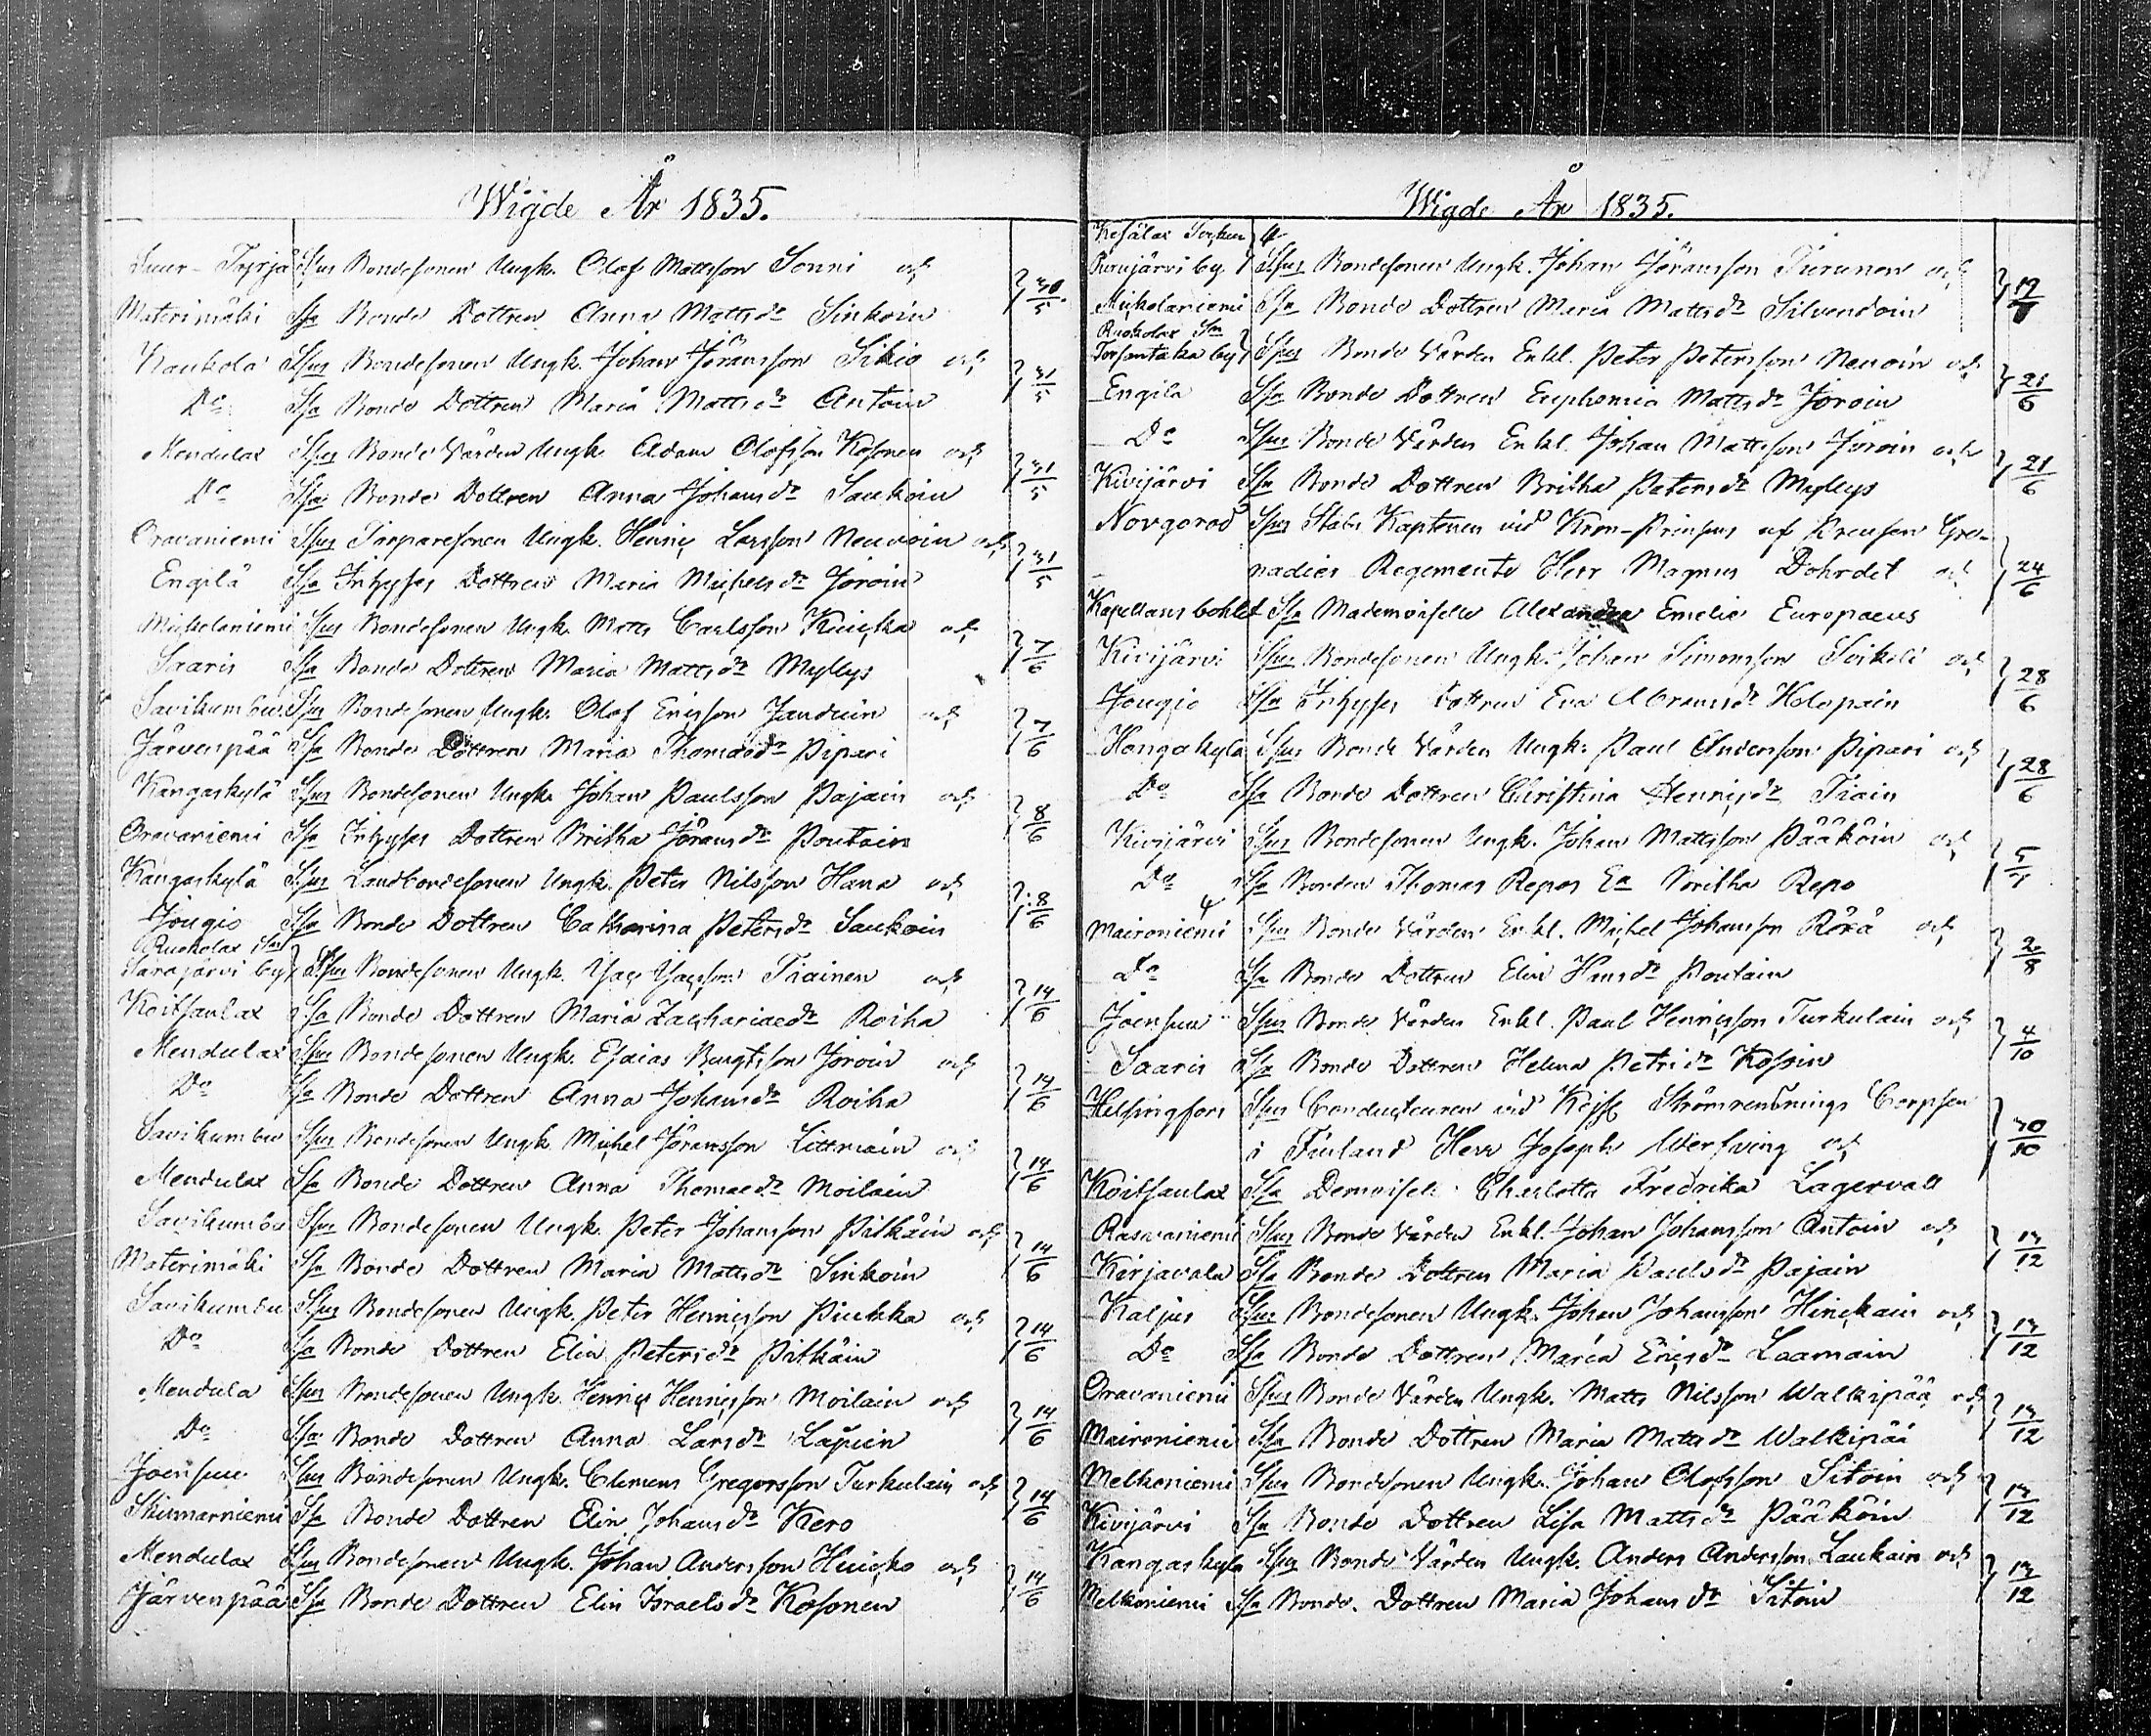 Wigde År 1835.
Suur-Törjä Spus Bondesonen Ungk. Olof Mattsson Sonni och 30/5
Materimäki Spa Bonde Dottren Anna Mattsdr Sinkoin
Kaukola Spus Bondesonen Ungk. Johan Jöransson Sikiö och 31/5
Do Spa Bonde Dottren Maria Mattsdr Antoin
Mendulax Spus Bonde Vården Ungk. Adam Olofsson Kosonen och 31/5
Do Spa Bonde Dottren Anna Johansdr Saukoin
Oravaniemi Spus Torparesonen Ungk. Henric Larsson Neuvoin och 31/5
Engilä Spa Inhyses Dottren Maria Michelsdr Joroin
Mickelaniemi Spus Bondesonen Ungk. Matts Carlsson Kuicka och 7/6
Saaris Spa Bonde Dottren Maria Mattsdr Myllys
Savikumbu Spus Bondesonen Ungk. Olof Ericsson Janduin och 7/6
Järvenpää Spa Bonde Dottren Maria Thomaedr Pipari
Kangaskylä Spus Bondesonen Ungk. Johan Paulsson Pajain och 8/6
Oravaniemi Spa Inhyses Dottren Britha Jöransdr Poutain
Kangaskylä Spus Landbondesonen Ungk. Peter Nilsson Hana och 8/6
Jougio Spa Bonde Dottren Catharina Petersdr Saukoin
Ruokolax Sn
Särajärvi by Spus Bondesonen Ungk. Isac Isacsson Tiainen och 14/6
Koitsanlax Spa Bonde Dottren Maria Zachariaedr Roiha
Mendulax Spus Bondesonen Ungk. Esaias Bengtsson Joroin och 14/6
Do Spa Bonde Dottren Anna Johansdr Roiha
Savikumbu Spus Bondesonen Ungk. Michel Jöransson Littmain och 14/6
Mendulax Spa Bonde Dottren Anna Thomaedr Moilain
Savikumbu Spus Bondesonen Ungk. Peter Johansson Pitkäin och 14/6
Materimäki Spa Bonde Dottren Maria Mattsdr Sinkoin
Savikumbu Spus Bondesonen Ungk. Peter Henricsson Piukka och 14/6
Do Spa Bonde Dottren Elin Petersdr Pitkäin
Mendula Spus Bondesonen Ungk. Henric Henricsson Moilain och 14/6
Do Spa Bonde Dottren Anna Larsdr Lapuin
Joensuu Spus Bondesonen Ungk. Clemens Gregorsson Turkulain och 14/6
Skinnarniemi Spa Bonde Dottren Elin Johansdr Kero
Mendulax Spus Bondesonen Ungk. Johan Andersson Huicko och 14/6
Järvenpää Spa Bonde Dottren Elin Israelsdr Kosonen
Wigde År 1835.
Kesälax Socken
Purujärvi by Spus Bondesonen Ungk. Johan Jöransson Turunen och 19/
Mickelaniemi Spa Bonde Dottren Maria Mattsdr Silvendoin
Ruokolax Sn
Torsantaka by Spus Bonde Vården Enkl. Peter Petersson Nenoin och 21/6
Engilä Spa Bonde Dottren Euphemia Mattsdr Joroin
Do Spus Bonde Vården Enkl. Johan Mattsson Joroin och 21/6
Kivijärvi Spa Bonde Dottren Britha Petersdr Myllys
Novgorod Spus Stabs Kaptenen vid Kron-Prinsens af Preusen Gre-
nadier Regemente Herr Magnus Dohrdel och 24/6
Kapellans bohlet Spa Mademoiselle Alexandra Emelie Europaeus
Kivijärvi Spus Bondesonen Ungk. Johan Simonsson Soikeli och 28/6
Jougio Spa Inhyses Dottren Eva Abramsdr Holopain
Kangaskylä Spus Bonde Vården Ungk. Paul Andersson Pipari och 28/6
Do Spa Bonde Dottren Christina Henricsdr Tiain
Kivijärvi Spus Bondesonen Ungk. Johan Mattsson Pääköin och 5/7
Do Spa Bonden Thomas Repos Ea Britha Repo
Maironiemi Spus Bonde Vården Enkl. Michel Johansson Rörä och 2/8
Do Spa Bonde Dottren Elin Hansdr Poutain
Joensuu Spus Bonde Vården Enkl. Paul Henricsson Turkulain och 4/10
Saaris Spa Bonde Dottren Helena Petridr Kossin
Helsingfors Spus Conducteuren vid Kejs. Strömrensnings Corpsen
i Finland Herr Joseph Werfving och 30/10
Koitsanlax Spa Demoiselle Charlotta Fredrika Lagervall
Rasvaniemi Spus Bonde Vården Enkl. Johan Johansson Antoin och 13/12
Kirjavala Spa Bonde Dottren Maria Paulsdr Pajain
Kaljus Spus Bondesonen Ungk. Johan Johansson Hinckain och 13/12
Do Spa Bonde Dottren Maria Ericsdr Laamain
Oravaniemi Spus Bonde Vården Ungk. Matts Nilsson Walkipää och 13/12
Maironiemi Spa Bonde Dottren Maria Mattsdr Walkipää
Melkoniemi Spus Bondesonen Ungk. Johan Olofsson Sitoin och 13/12
Kivijärvi Spa Bonde Dottren Lisa Mattsdr Pääköin
Kangaskylä Spus Bonde Vården Ungk. Anders Andersson Laukain och 13/12
Melkoniemi Spa Bonde Dottren Maria Johansdr Sitoin